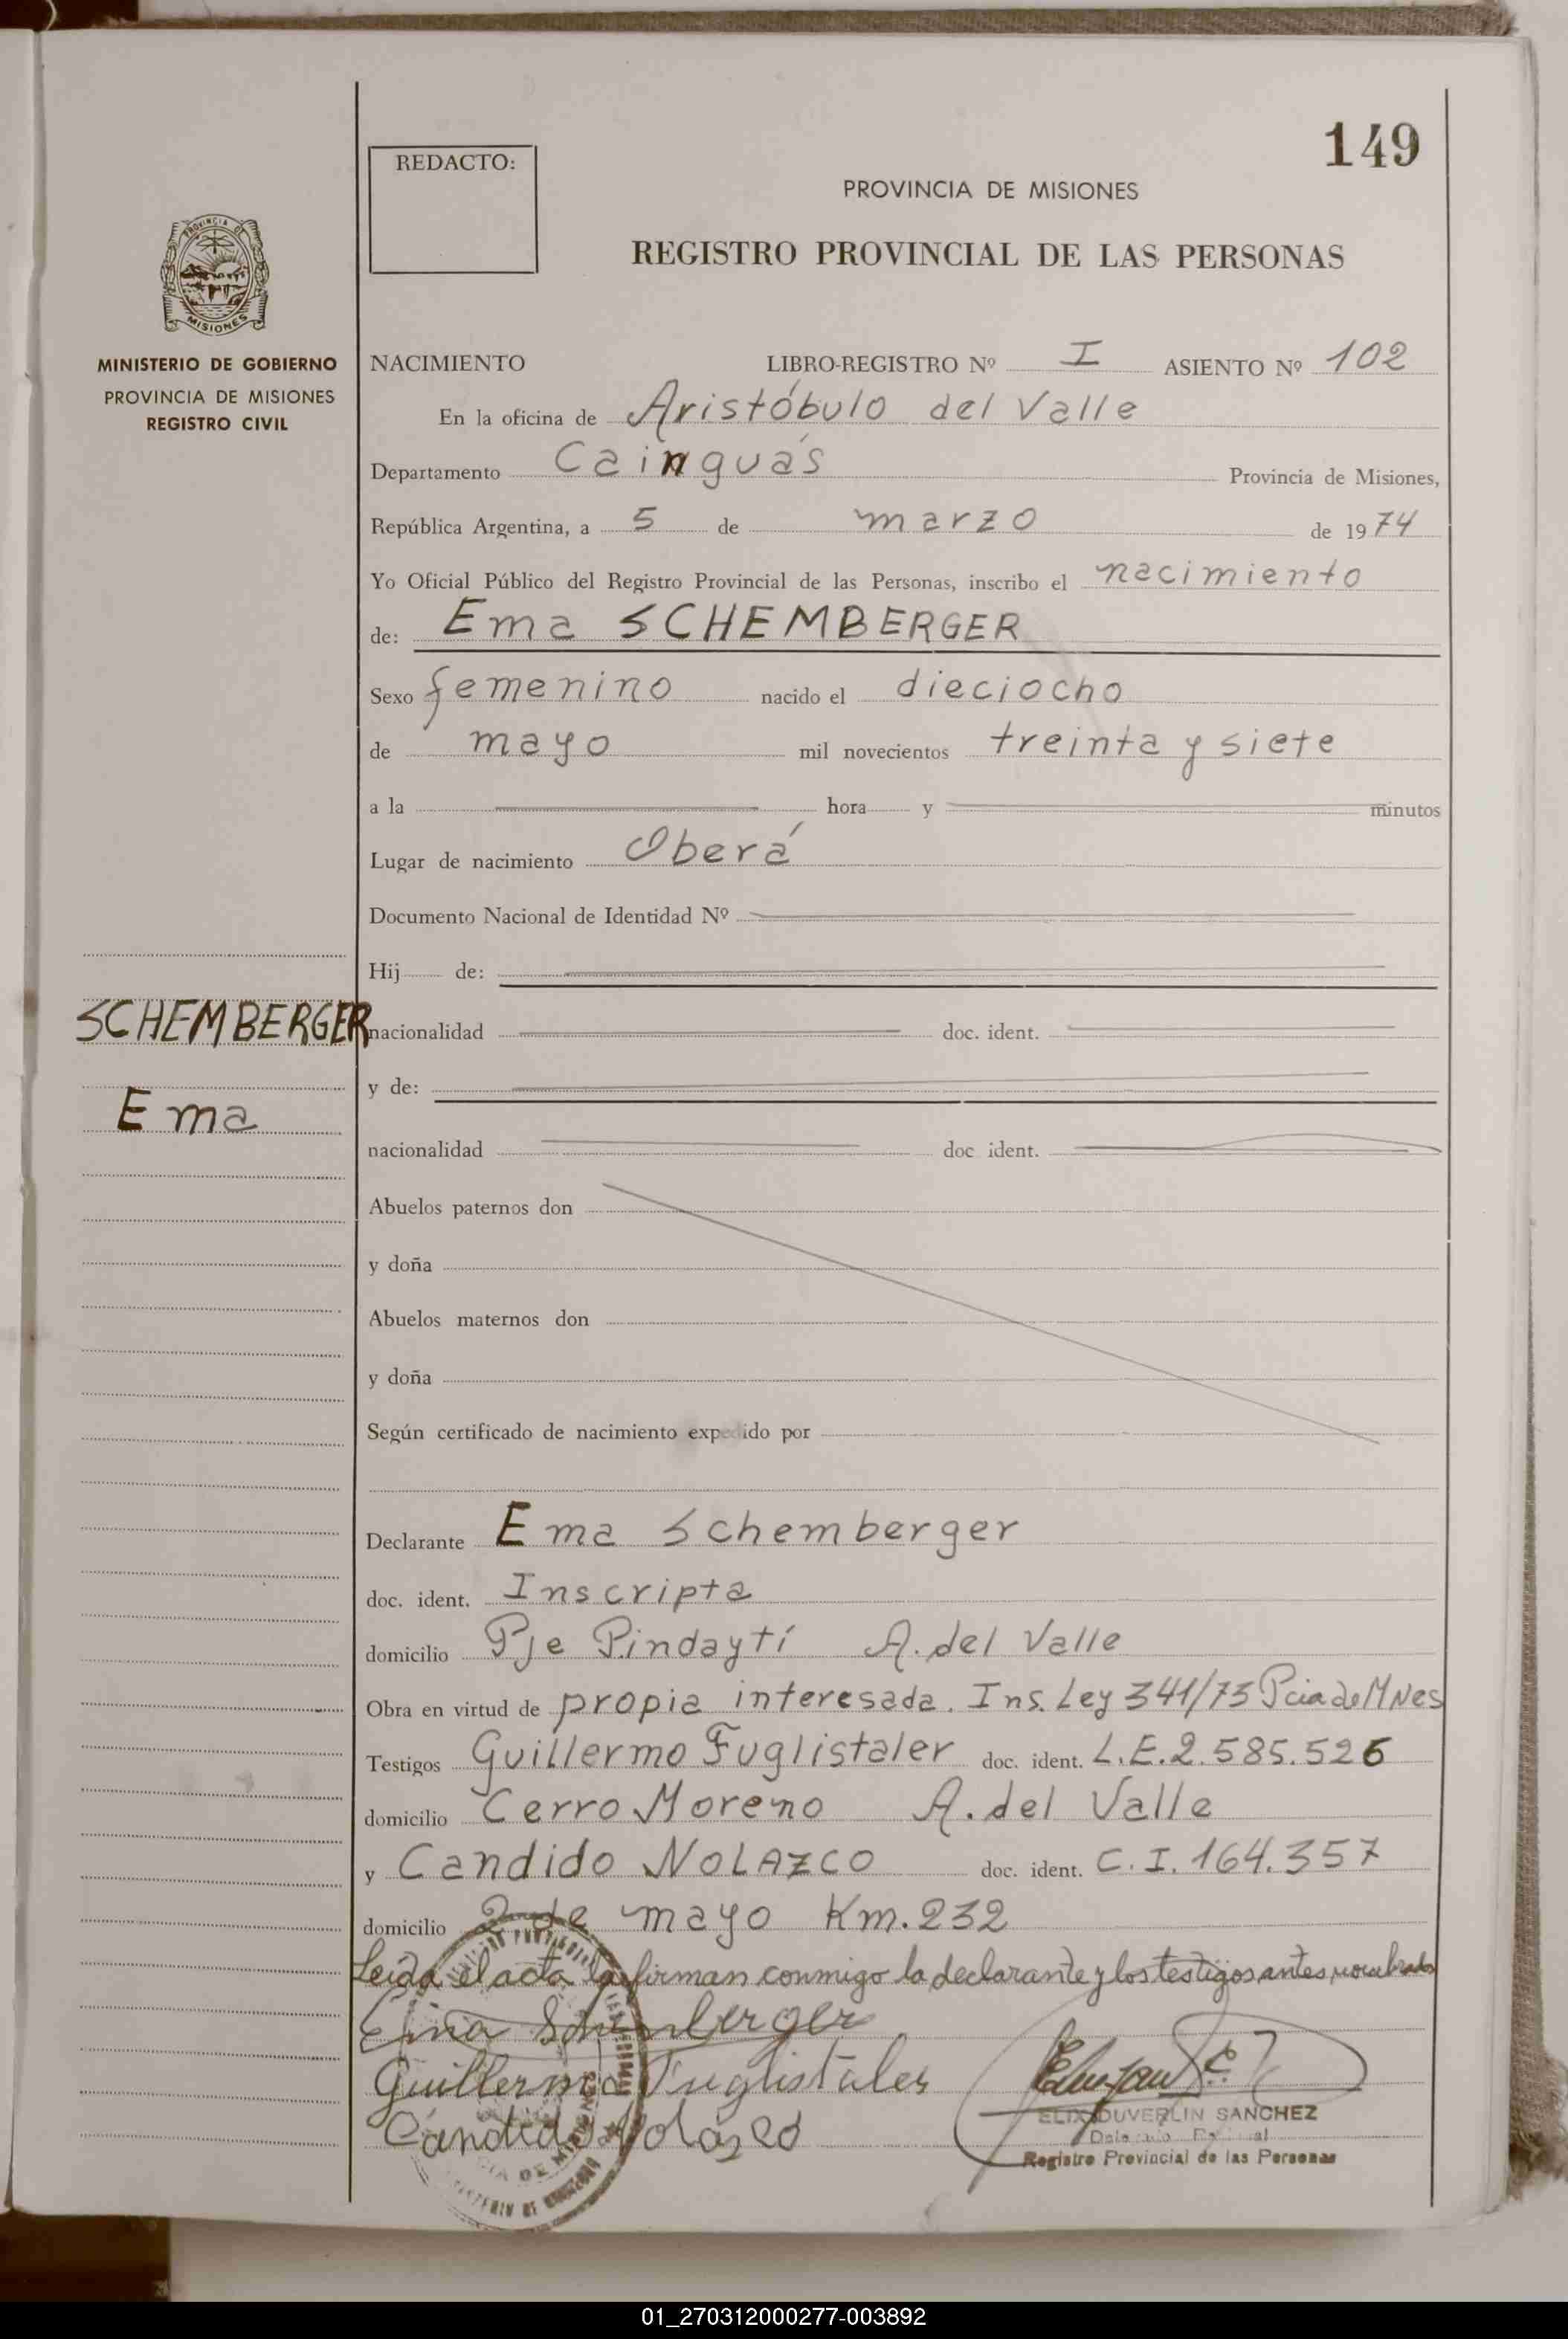 149
REDACTO:
PROVINCIA DE MISIONES
REGISTRO PROVINCIAL DE LAS PERSONAS
PROVINCIA DE
MISIONES
MINISTERIO DE GOBIERNO
PROVINCIA DE MISIONES
REGISTRO CIVIL
NACIMIENTO LIBRO-REGISTRO Nº I ASIENTO Nº 102
En la oficina de Aristóbulo del Valle
Departamento Cainguás Provincia de Misiones,
República Argentina, a 5 de marzo de 1974
Yo Oficial Público del Registro Provincial de las Personas, inscribo el nacimiento
de: Ema SCHEMBERGER
Sexo femenino nacido el dieciocho
de mayo mil novecientos treinta y siete
a la hora y minutos
Lugar de nacimiento Oberá
Documento Nacional de Identidad Nº
Hij de:
SCHEMBERGER
Ema
nacionalidad doc. ident.
y de:
nacionalidad doc ident.
Abuelos paternos don
y doña
Abuelos maternos don
y doña
Según certificado de nacimiento expedido por
Declarante Ema Schemberger
doc. ident. Inscripta
domicilio Pje Pindaytí A. del Valle
Obra en virtud de propia interesada. Ins. Ley 341/73 Pcia de MNes
Testigos Guillermo Fuglistaler doc. ident. L.E. 2.585.526
domicilio Cerro Moreno A. del Valle
y Candido NOLAZCO doc. ident. C.I. 164.357
domicilio 2 de mayo Km. 232
Leida el acta la firman conmigo la declarante y los testigos antes nombrados
Ema Schemberger
Guillermo Fuglistaler
Candido Nolazco
DUVERLIN SANCHEZ
Registro Provincial de las Personas
01_270312000277-003892